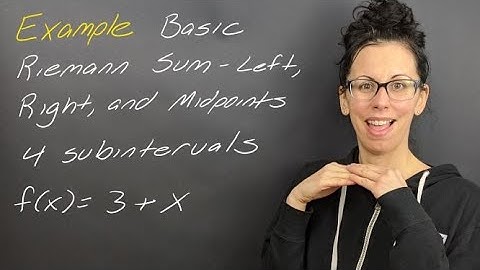 Example Basic
Riemann Sum - Left,
Right, and Midpoints
4 subintervals
f(x) = 3 + x